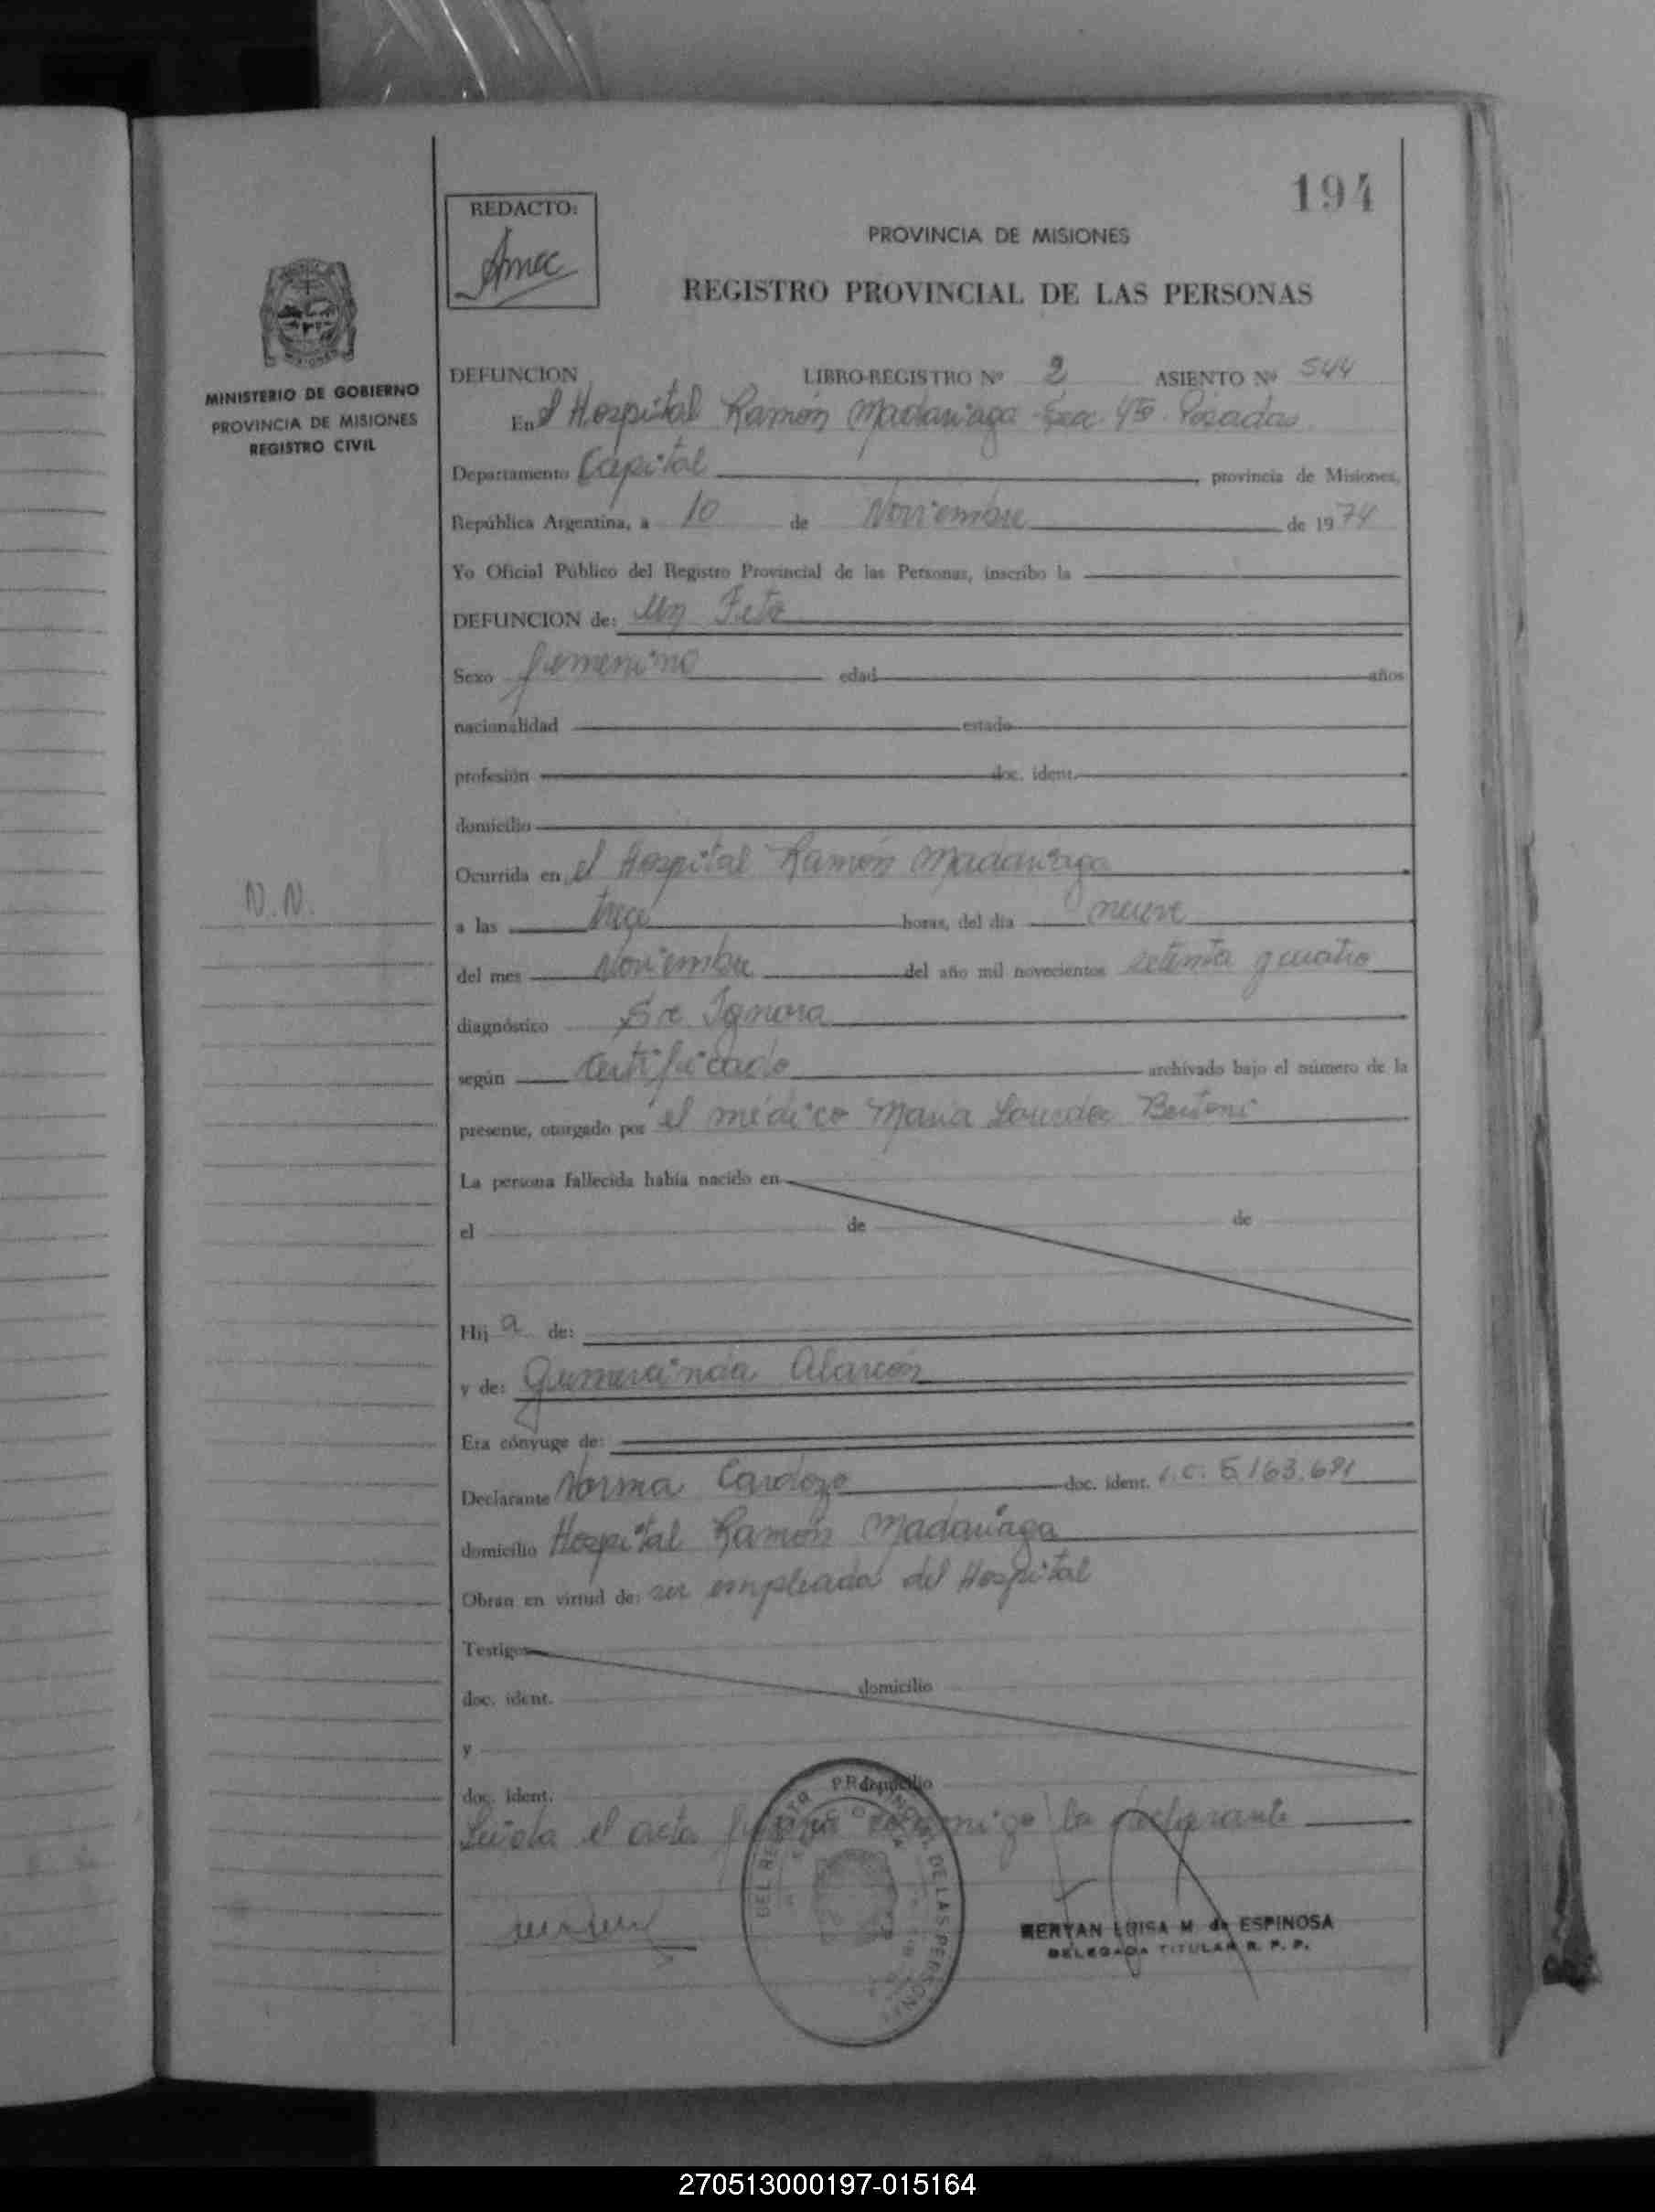 194
REDACTO:
PROVINCIA DE MISIONES
REGISTRO PROVINCIAL DE LAS PERSONAS
MINISTERIO DE GOBIERNO
PROVINCIA DE MISIONES
REGISTRO CIVIL
DEFUNCION LIBRO-REGISTRO Nº 2 ASIENTO Nº 544
En el Hospital Ramón Madariaga Sec. 4ta. Posadas
Departamento Capital, provincia de Misiones,
República Argentina, a 10 de Noviembre de 1974
Yo Oficial Público del Registro Provincial de las Personas, inscribo la
DEFUNCION de: Un Feto
Sexo femenino edad años
nacionalidad estado
profesión doc. ident.
domicilio
Ocurrida en el Hospital Ramón Madariaga
N.N.
a las trece horas, del día nueve
del mes Noviembre del año mil novecientos setenta y cuatro
diagnóstico Se Ignora
según certificado archivado bajo el número de la
presente, otorgado por el médico Maria Lourdes Bertoni
La persona fallecida había nacido en
el de de
Hij a de:
y de: Gumercinda Alarcón
Era cónyuge de:
Declarante Norma Cardozo doc. ident. L.C. 5.163.691
domicilio Hospital Ramón Madariaga
Obran en virtud de: ser empleada del Hospital
Testigos
doc. ident. domicilio
y
doc. ident. domicilio
Leída el acta firma conmigo la declarante
DEL REGISTRO PROVINCIAL DE LAS PERSONAS
MERYAN LUISA M. de ESPINOSA
DELEGADA TITULAR R. P. P.
270513000197-015164